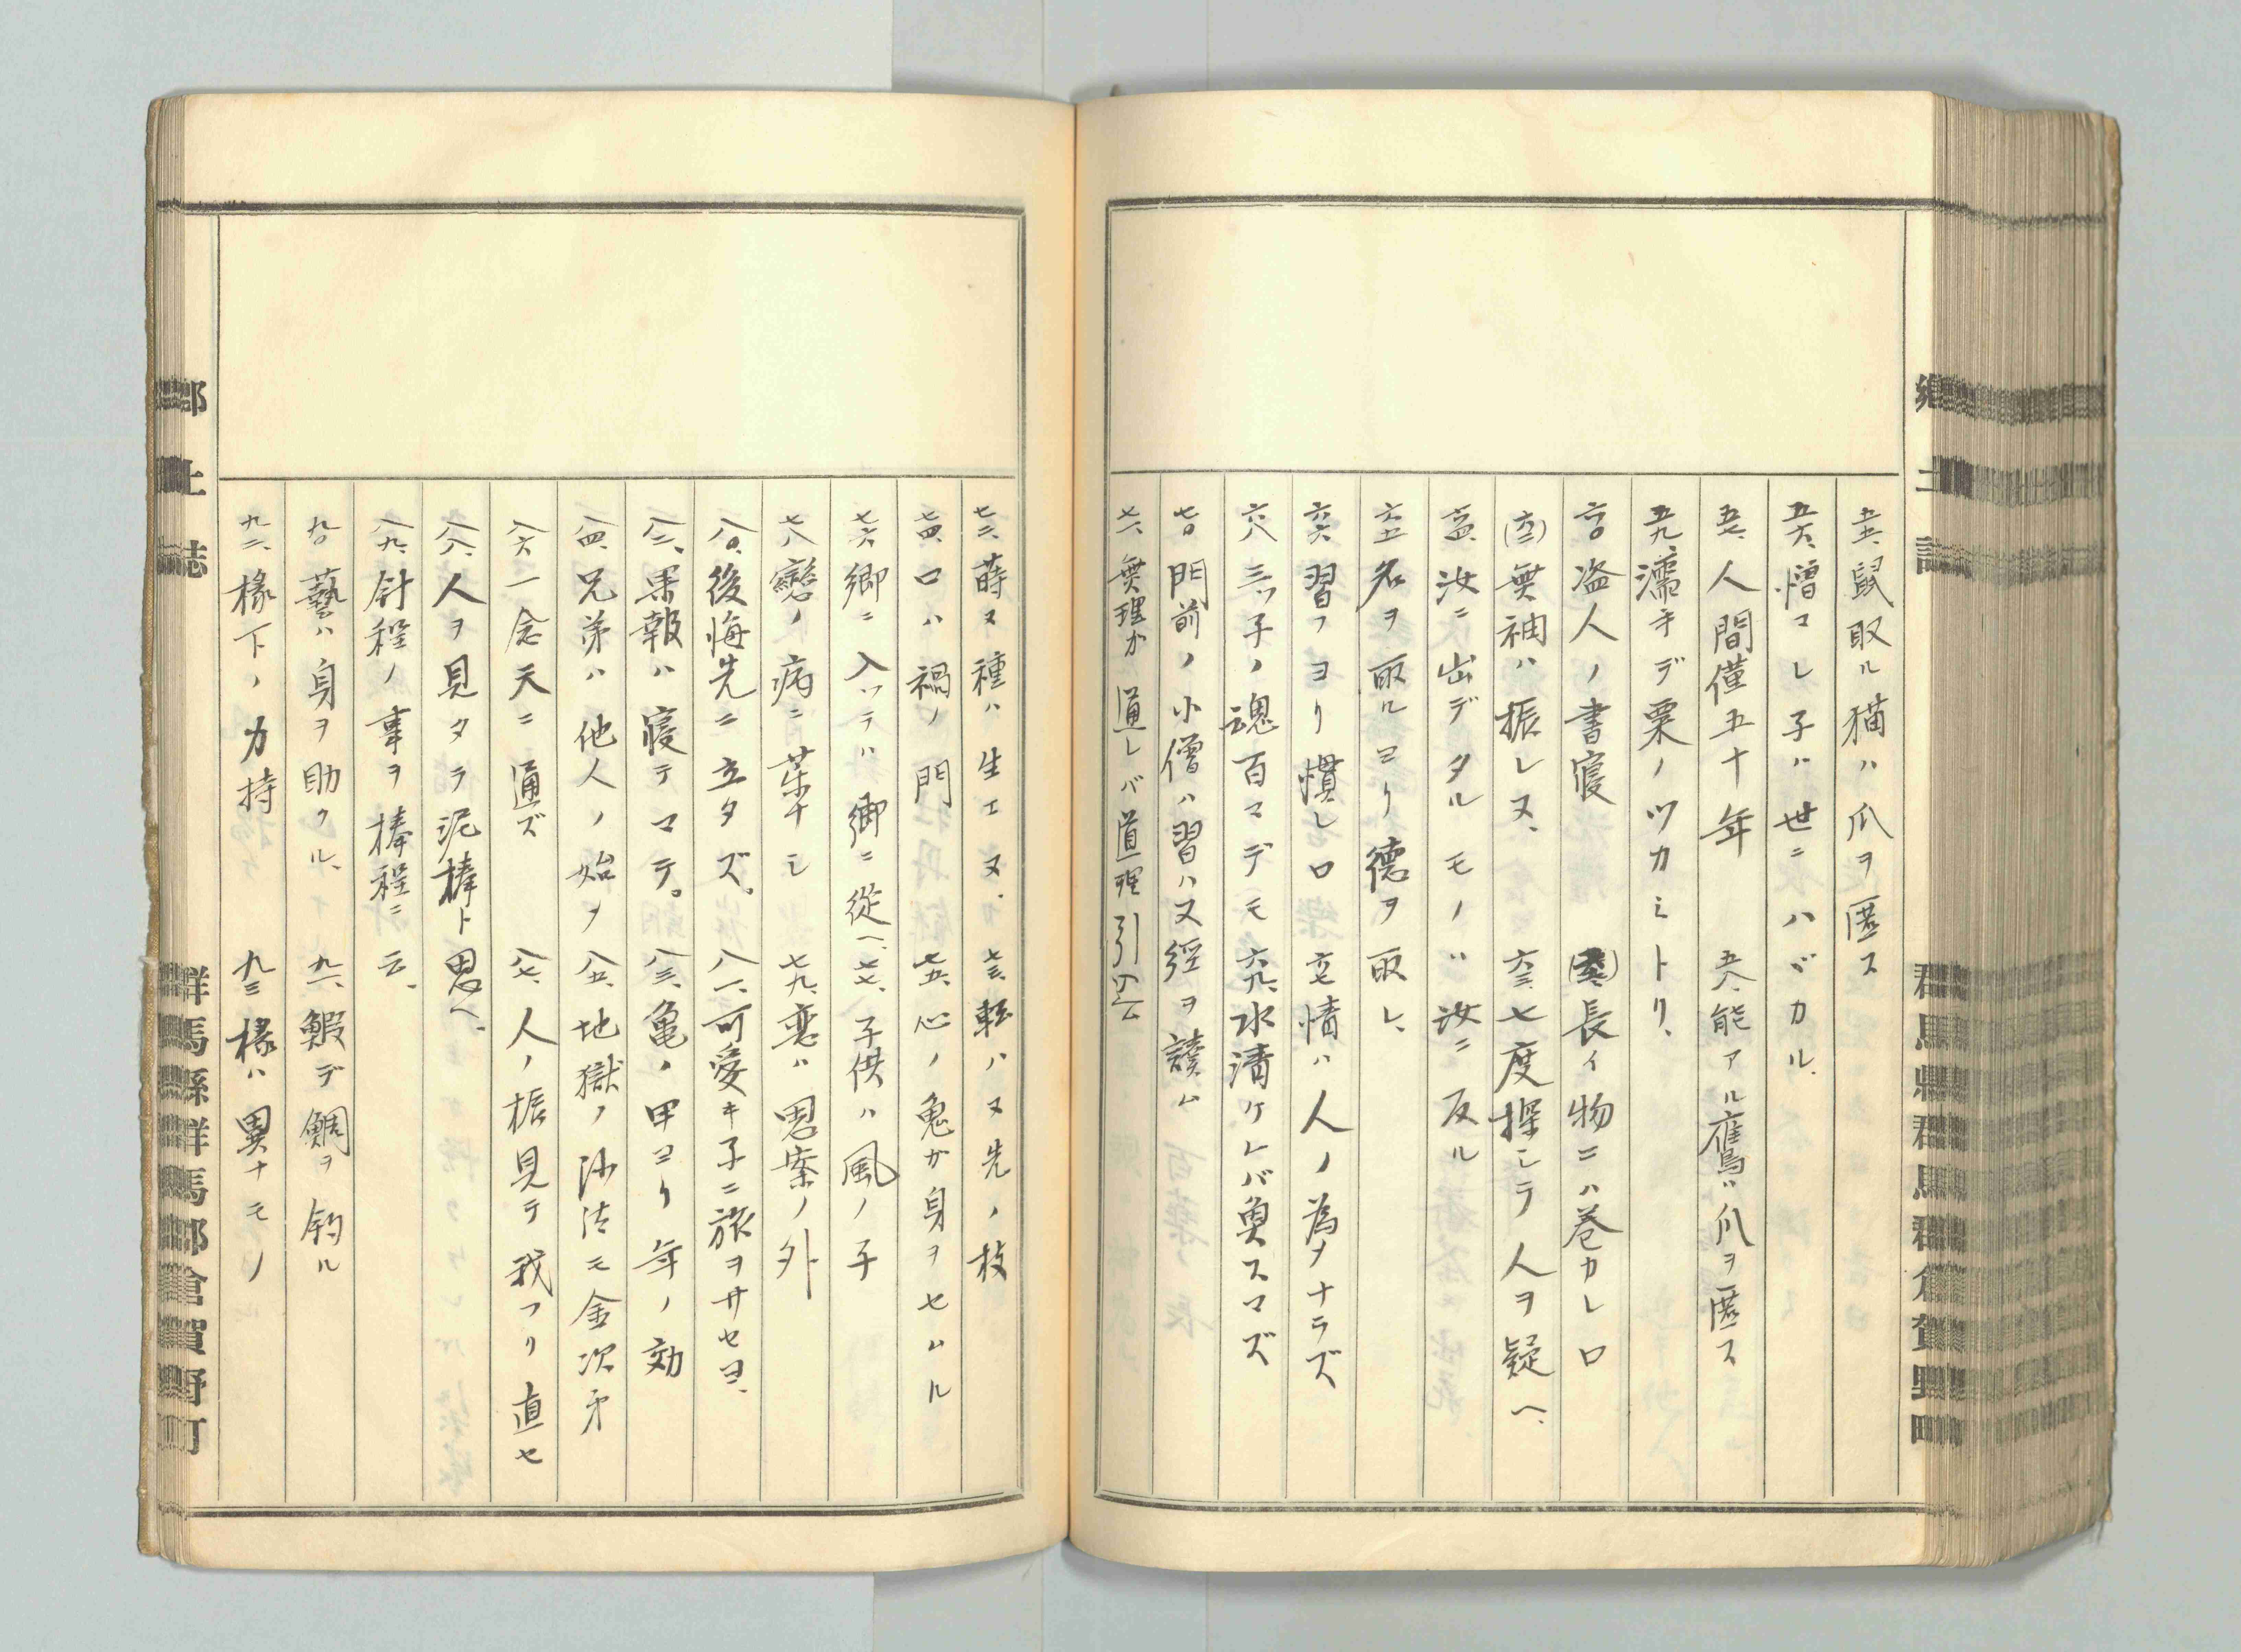 郷土誌
群馬縣群馬郡倉賀野町
五五、鼠取ル猫ハ爪ヲ匿ス
五六、憎マレ子ハ世ニハバカル、
五七、人間僅五十年 五八、能アル鷹ハ爪ヲ匿ス
五九、濡手デ粟ノツカミトリ、
六〇盗人ノ書寝 長イ物ニハ巻カレロ
(六二)無袖ハ振レヌ、 六三、七度探シテ人ヲ疑ヘ、
六四、汝ニ出デタルモノハ汝ニ反ル
六五名ヲ取ルヨリ徳ヲ取レ、
六六習フヨリ慣レロ 六七情ハ人ノ為ヲナラズ
六八三ツ子ノ魂百マデモ 六九、水清ケレバ魚スマズ
七〇門前ノ小僧ハ習ハヌ経ヲ讀ム
七一、無理ガ通レバ道理引込ム
七二、蒔ヌ種ハ生エヌ、 七三、転ハヌ先ノ杖
七四、口ハ禍ノ門 七五、心ノ鬼ガ身ヲセムル
七六郷ニ入ツテハ郷ニ從ヘ、 七七、子供ハ風ノ子
七八戀ノ病ニ薬ナシ 七九、恋ハ思案ノ外
八〇、後悔先ニ立タズ。 八一、可愛キ子ニ旅ヲサセヨ、
八二、果報ハ寝テマテ。 八三、亀ノ甲ヨリ年ノ効
八四、兄弟ハ他人ノ始ヲ 八五、地獄ノ沙汰モ金次第
八六一念天ニ通ズ 八七、人ノ振見テ我フリ直セ
八八、人ヲ見タラ泥棒ト思ヘ、
八九、針程ノ事ヲ棒程ニ云、
九〇藝ハ身ヲ助クル、 九一、鰕デ鯛ヲ釣ル
九二、椽下ノ力持 九三様ハ異ナモノ
郷土誌
群馬縣群馬郡倉賀野町